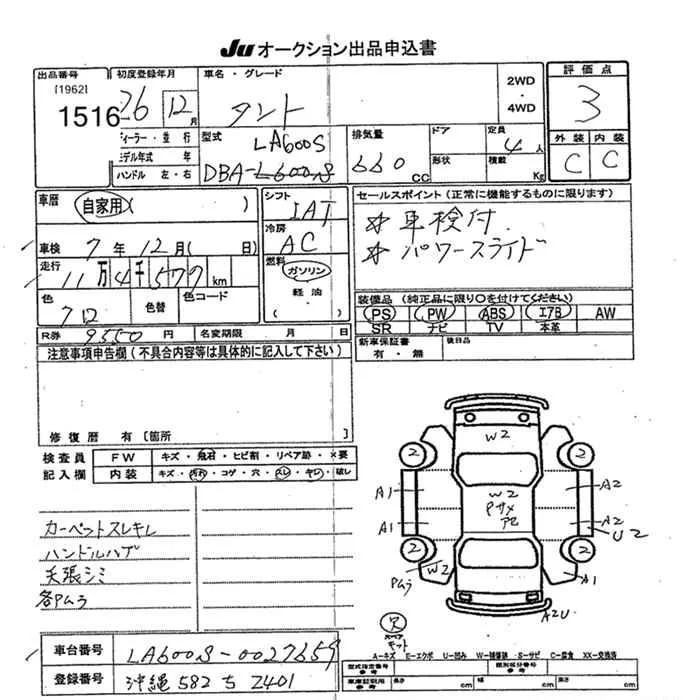 Ju オークション出品申込書
出品番号 初度登録年月 車名・グレード 2WD・4WD 評価点
[1962]
1516 26 12月 タント 3
ディーラー・並行 型式 LA600S 排気量 ドア 定員 4人 外装 内装
モデル年式 年 DBA-L600S 660CC 形状 積載 Kg C C
ハンドル 左・右
車歴 自家用( ) シフト IAT セールスポイント(正常に機能するものに限ります)
車検 7年12月( 日) 冷房 AC 車検付
走行 11万4千577km 燃料 ガソリン・軽油・( ) パワースライド
色 クロ 色替 色コード 装備品(純正品に限り○を付けてください)
PS PW ABS エアB AW
SR ナビ TV 本革
R券 9550円 名変期限 月 日 新車保証書 有・無 後日品
注意事項申告欄(不具合内容等は具体的に記入して下さい)
修復歴 有[箇所 ]
検査員 FW キズ・飛石・ヒビ割・リペア跡・×要
記入欄 内装 キズ・汚れ・コゲ・穴・スレ・キレ・破レ
カーペットスレキレ
ハンドルハゲ
天張シミ
各Pムラ
W2
2 2
A1 W2 A2
Pサメ
A1 A2
U2
2 2
Pムラ W2 A1
A2U
欠
スペア
キット
A=キズ E=エクボ U=凹み W=補修跡 S=サビ C=腐食 XX=交換済
車台番号 LA600S-0027659
登録番号 沖縄 582 ち 2401
型式指定番号 類別区分番号
参考 参考
車庫証明用 長さ cm 幅 cm 高さ cm
参考